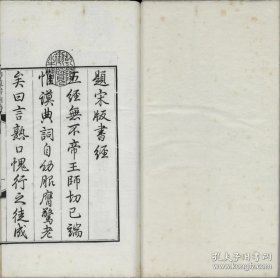 題宋版書經
五經無不帝王師切己端
惟謨典詞自幼服膺驚老
矣曰言熟口愧行之徒成
孔夫子旧书网